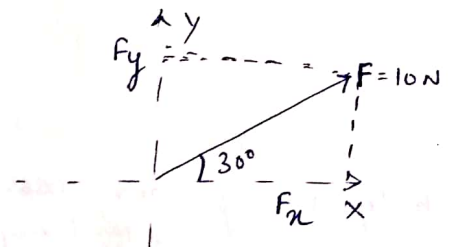 Y
Fy
F = 10 N
30°
Fx
X